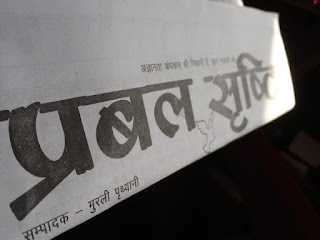 अज्ञानता अंधकार की निशानी है, ज्ञान उजाले का
प्रबल सृष्टि
सम्पादक - मुरली पृथ्यानी